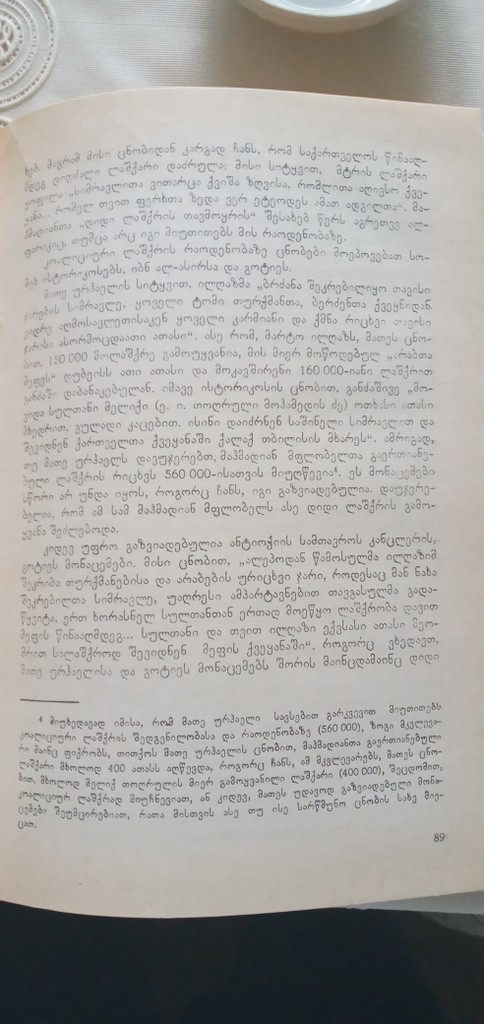 ხებ. მაგრამ მისი ცნობიდან კარგად ჩანს, რომ საქართველოს წინააღ-
მდეგ დიდძალი ლაშქარი დაძრულა; მისი სიტყვით, მტრის ლაშქარი
ყოფილა „სიმრავლითა ვითარცა ქვიშა ზღვისა, რომლითა აღივსო ქვე-
ყანა... რომელ თვით ფერხთა ზედა ვერ ეტეოდეს ამათ ადგილთა“. მა-
ჰმადიანთა „დიდი ლაშქრის თავმოყრის“ შესახებ წერს აგრეთვე ალ-
ფარიკიც, თუმცა არც იგი მიუთითებს მის რაოდენობაზე.
კოალიციური ლაშქრის რაოდენობაზე ცნობები მოეპოვებათ სო-
მეხ ისტორიკოსებს, იბნ ალ-ასირსა და გოტიეს.
მათე ურჰაელის სიტყვით, ილღაზმა „ბრძანა შეკრებილიყო თავისი
ჯარების სიმრავლე. ყოველი ტომი თურქმანთა, ბერძენთა ქვეყნიდან
ვიდრე აღმოსავლეთისაკენ ყოველი კარმიანი და ქმნა რიცხვი თავისი
ჯარისა ასორმოცდაათი ათასი“. ასე რომ, მარტო ილღაზს, მათეს ცნო-
ბით, 150 000 მოლაშქრე გამოუყვანია, მის მიერ მოწოდებულ „არაბთა
მეფეს“ დუბეისს ათი ათასი და მოკავშირენი 160 000-იანი ლაშქრით
განძაში დაბანაკებულან. იმავე ისტორიკოსის ცნობით, განძაშივე „მო-
ვიდა სულთანი მელიქი (ე. ი. თოღრული მოჰამედის ძე) ოთხასი ათასი
მხედრით, გულადი კაცებით. ისინი დაიძრნენ საშინელი სიმრავლით და
შევიდნენ ქართველთა ქვეყანაში ქალაქ თბილისის მხარეს“. ამრიგად,
თუ მათე ურჰაელს დავუჯერებთ, მაჰმადიან მფლობელთა გაერთიანე-
ბული ლაშქრის რიცხვს 560 000-ისათვის მიუღწევია⁴. ეს მონაცემები
სწორი არ უნდა იყოს, როგორც ჩანს, იგი გაზვიადებულია. დაუჯერე-
ბელია, რომ ამ სამ მაჰმადიან მფლობელს ასე დიდი ლაშქრის გამო-
ყვანა შეძლებოდა.
კიდევ უფრო გაზვიადებულია ანტიოქიის სამთავროს კანცლერის,
გოტიეს მონაცემები. მისი ცნობით, „ალეპოდან წამოსულმა ილღაზიმ
შეკრიბა თურქმანებისა და არაბების ურიცხვი ჯარი, როდესაც მან ნახა
შეკრებილთა სიმრავლე, უაღრესი ამპარტავნებით თავგასულმა გადა-
წყვიტა, ერთ ხორასნელ სულთანთან ერთად მოეწყო ლაშქრობა დავით
მეფის წინააღმდეგ... სულთანი და თვით ილღაზი ექვსასი ათასი მეო-
მრით სალაშქროდ შევიდნენ მეფის ქვეყანაში“. როგორც ვხედავთ,
მათე ურჰაელისა და გოტიეს მონაცემებს შორის მაინცდამაინც დიდი
⁴ მიუხედავად იმისა, რომ მათე ურჰაელი სავსებით გარკვევით მიუთითებს
კოალიციური ლაშქრის შედგენილობასა და რაოდენობაზე (560 000), ზოგი მკვლევა-
რი მაინც ფიქრობს, თითქოს მათე ურჰაელის ცნობით, მაჰმადიანთა გაერთიანებული
ლაშქარი მხოლოდ 400 ათასს აღწევდა, როგორც ჩანს, ამ მკვლევარებს, მათეს ცნო-
ბით, მხოლოდ მელიქ თოღრულის მიერ გამოყვანილი ლაშქარი (400 000), შეცდომით,
კოალიციურ ლაშქრად მიუჩნევიათ, ან კიდევ, მათეს უდავოდ გაზვიადებული მონა-
ცემები შეუმცირებიათ, რათა მისთვის ასე თუ ისე სარწმუნო ცნობის სახე მიე-
ცათ.
89